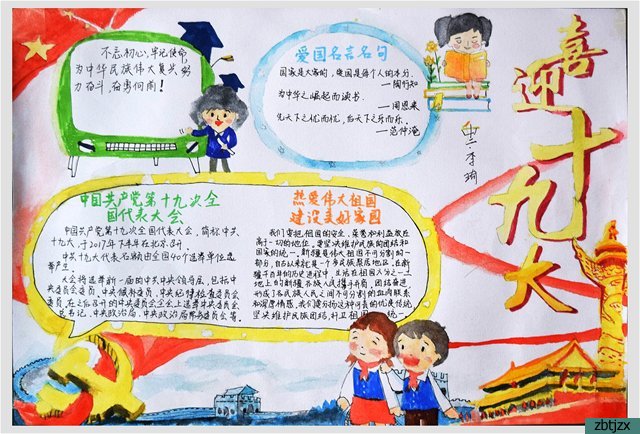 不忘初心,牢记使命,
为中华民族伟大复兴努
力奋斗,奋勇向前!
爱国名言名句
国家是大家的,爱国是每个人的本分。
—陶行知
为中华之崛起而读书。
—周恩来
先天下之忧而忧,后天下之乐而乐。
—范仲淹
喜迎十九大
中国共产党第十九次全
国代表大会
中国共产党第十九次全国代表大会,简称中共
十九大,于2017年下半年在北京召开。
中共十九大代表名额由全国40个选举单位选
举产生。
大会将选举新一届的中共中央领导层,包括中
央委员会委员、中央候补委员、中央纪律检查委员会
委员,在之后召开的中央委员会全会上选举中央委员会
总书记、中央政治局、中央政治局常务委员会等。
热爱伟大祖国
建设美好家园
我们要把祖国的安全、荣誉和利益放在
高于一切的地位,要坚决维护民族的团结和
国家的统一,新疆是伟大祖国不可分割的一
部分,自古以来就是一个多民族聚居地区,在新
疆千百年的历史进程中,生活在祖国六分之一土
地上的新疆各族人民携手并肩,团结奋进
形成了各民族人民之间不可分割的血肉联系
和深厚情感,我们要发扬这种可贵的优良传统,
坚决维护民族团结,捍卫祖国统一。
zbtjzx